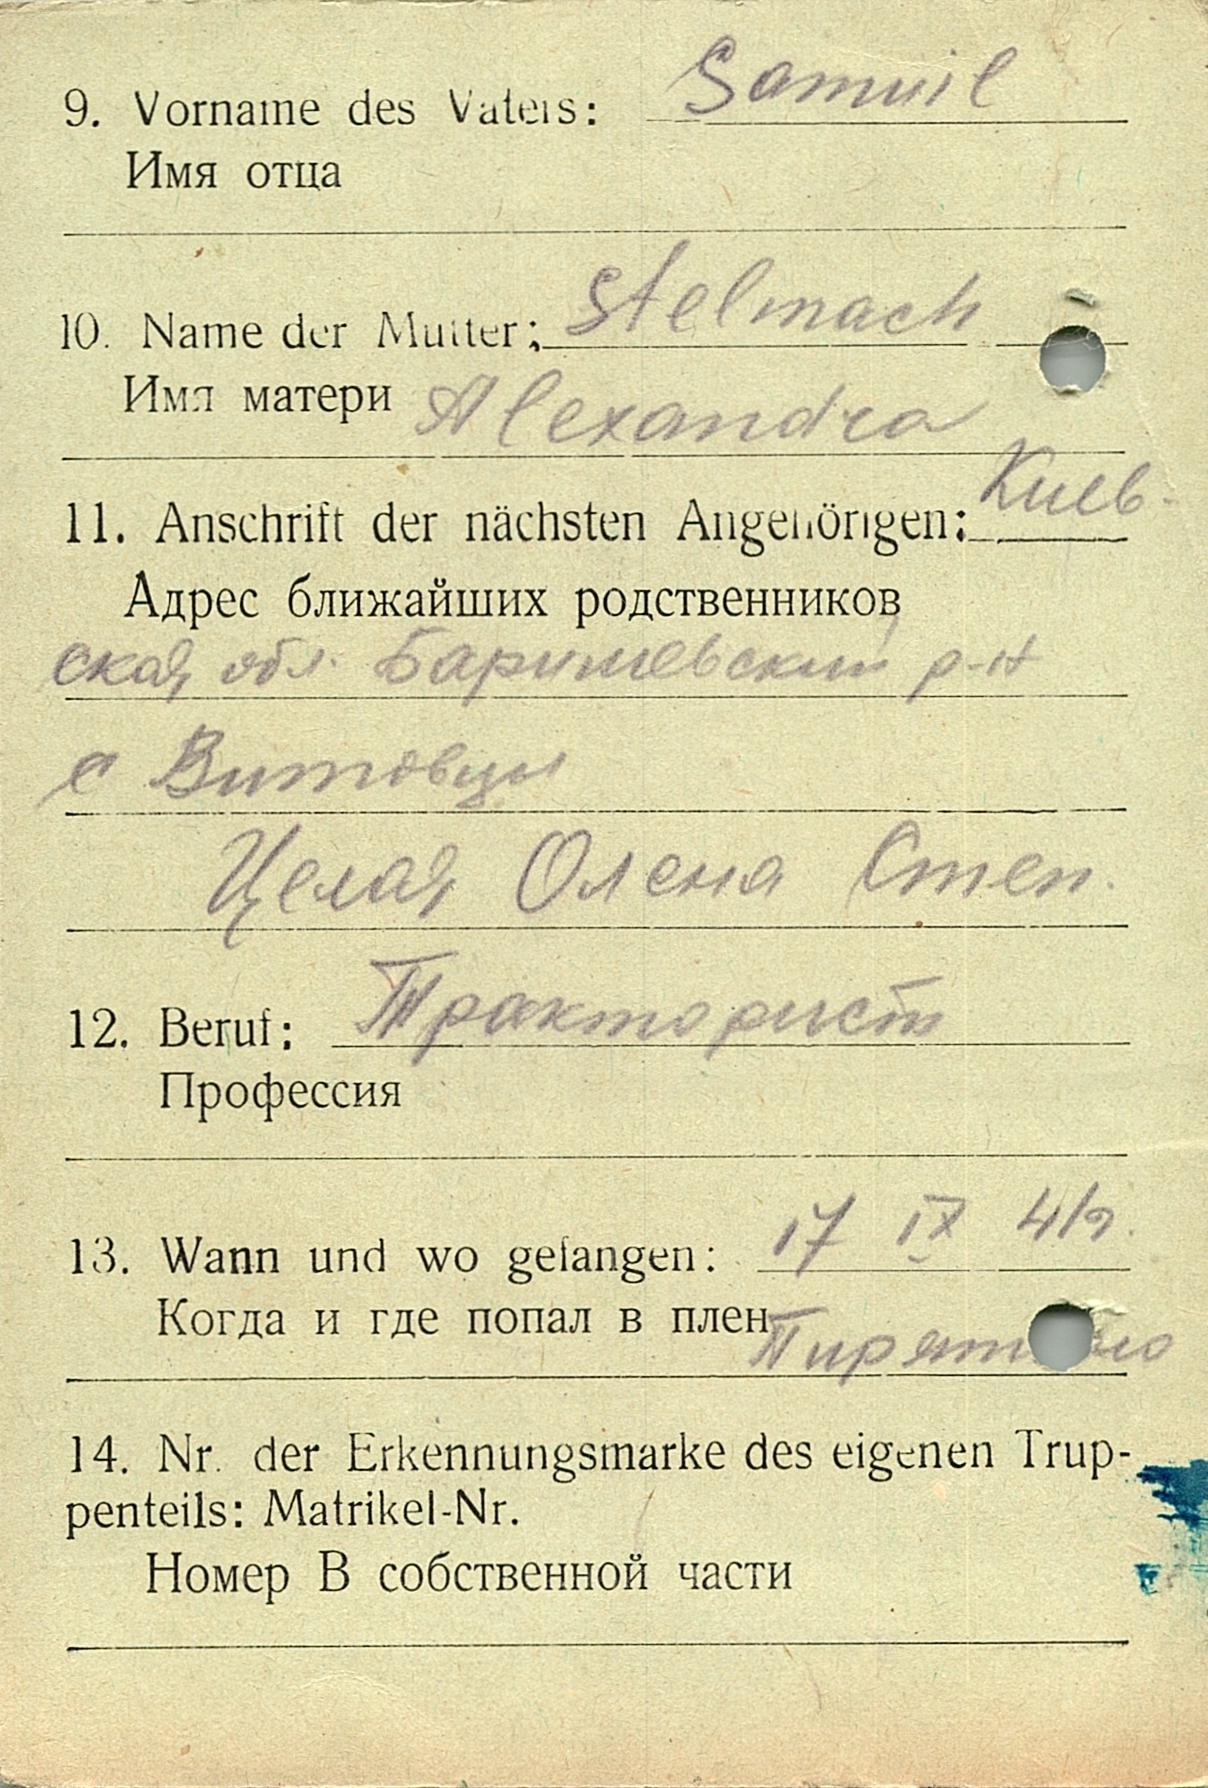 9. Vorname des Vaters: Samuil
Имя отца
10. Name der Mutter: Stelmach
Имя матери Alexandra
11. Anschrift der nächsten Angehörigen: Киев-
Адрес ближайших родственников
ская обл. Баришевский р-н
с Витовцы
Целая Олена Степ.
12. Beruf: Тракторист
Профессия
13. Wann und wo gefangen: 17 IX 41г.
Когда и где попал в плен
14. Nr. der Erkennungsmarke des eigenen Trup-
penteils: Matrikel-Nr.
Номер В собственной части